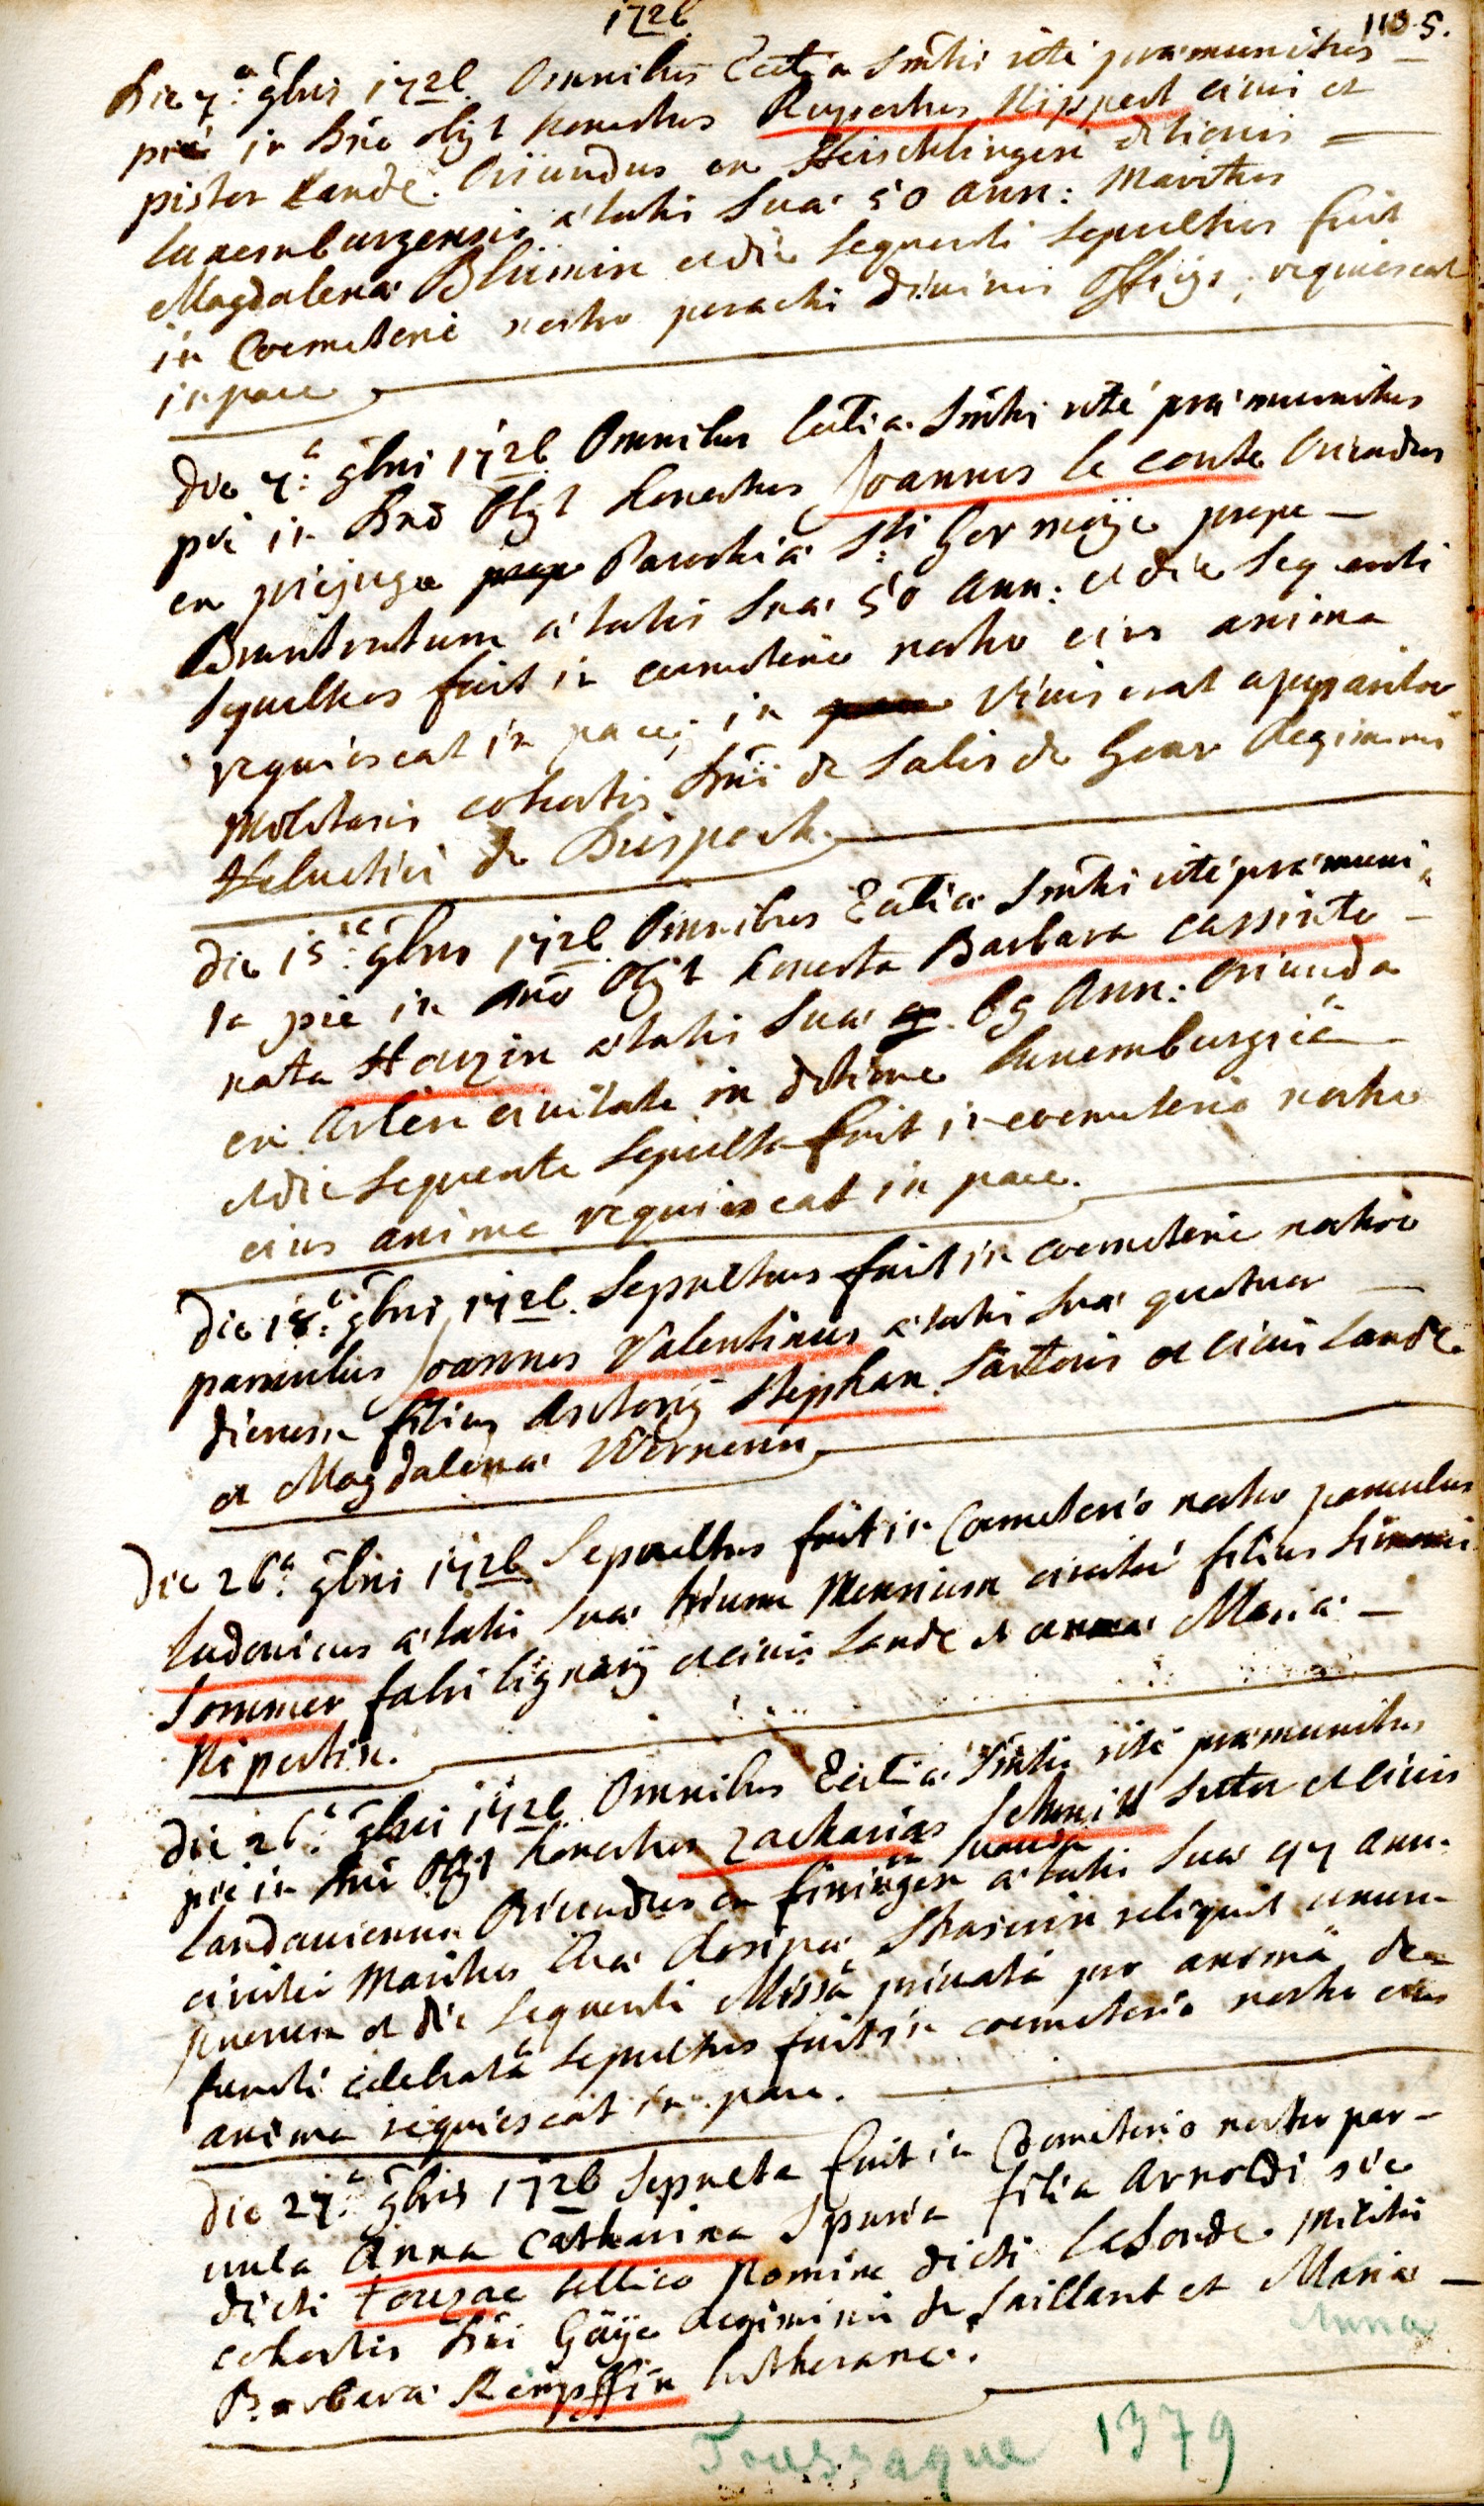 1726
113.5.
Die 7ª 9bris 1726 Omnibus Eccl̄iæ Sm̄tis ritè præmunitus
piè in Dn̄o obijt honestus Rupertus Nippert civis et
pistor Landæ. Oriundus ex Heischlingen ditionis
luxemburgensis ætatis suæ 50 ann: maritus
Magdalenæ Blümin et die sequenti sepultus fuit
in Coemeterio nostro peractis divinis officijs, requiescat
in pace
Die 7ª 9bris 1726 Omnibus Eccl̄iæ Sm̄tis ritè præmunitus
piè in Dn̄o obijt honestus Joannes le conte Oriundus
ex Parochia Sti Germaÿe prope
Bruntrutum ætatis suæ 50 Ann: et die sequenti
sepultus fuit in coemeterio nostro eius anima
requiescat in pace; in vivis erat apparitor
Militaris cohortis Dn̄i de Salis de Regiminis
Helvetici de
Die 15ª 9bris 1726 Omnibus Eccl̄iæ Sm̄tis ritè præmuni
ta piè in Dn̄o obijt honesta Barbara cassinte
nata Hauzin ætatis suæ 69 Ann: Oriunda
ex Arlen civitate in ditione luxemburgicâ
et die sequente sepulta fuit in coemeterio nostro
eius anima requiescat in pace.
Die 18ª 9bris 1726 Sepultus fuit in coemeterio nostro
parvulus Joannes Valentinus ætatis suæ quatuor
dierum filius Antonÿ Stephan Sartoris et civis Landæ
et Magdalenæ Wernerin
Die 26ª 9bris 1726 Sepultus fuit in Coemeterio nostro parvulus
ludovicus ætatis suæ trium Mensium circiter filius Simonis
Sommer fabri lignarÿ et civis Landæ et Maria
Nipertin.
Die 26ª 9bris 1726 Omnibus Eccl̄iæ Sm̄tis ritè præmunitus
piè in Dn̄o obijt honestus Zacharias Schmitt Sutor et civis
Landaviensis Oriundus ex finingen ex Suevia ætatis suæ 47 ann.
circiter Maritus Evæ Rosinæ reliquit unum
puerum et die sequenti Missâ privatâ pro animâ de
functi celebratâ sepultus fuit in coemeterio nostro eius
anima requiescat in pace.
Die 27ª 9bris 1726 Sepulta fuit in Coemeterio nostro par
vula Anna Catharina Spuria filia Arnoldi sic
dicti touzac bellico Nomine dicti laSonde Militis
cohortis Dn̄i Gäÿe Regiminis de Saillant et Maria
Anna
Barbara Kempffin lutherana.
Toussaque 1379